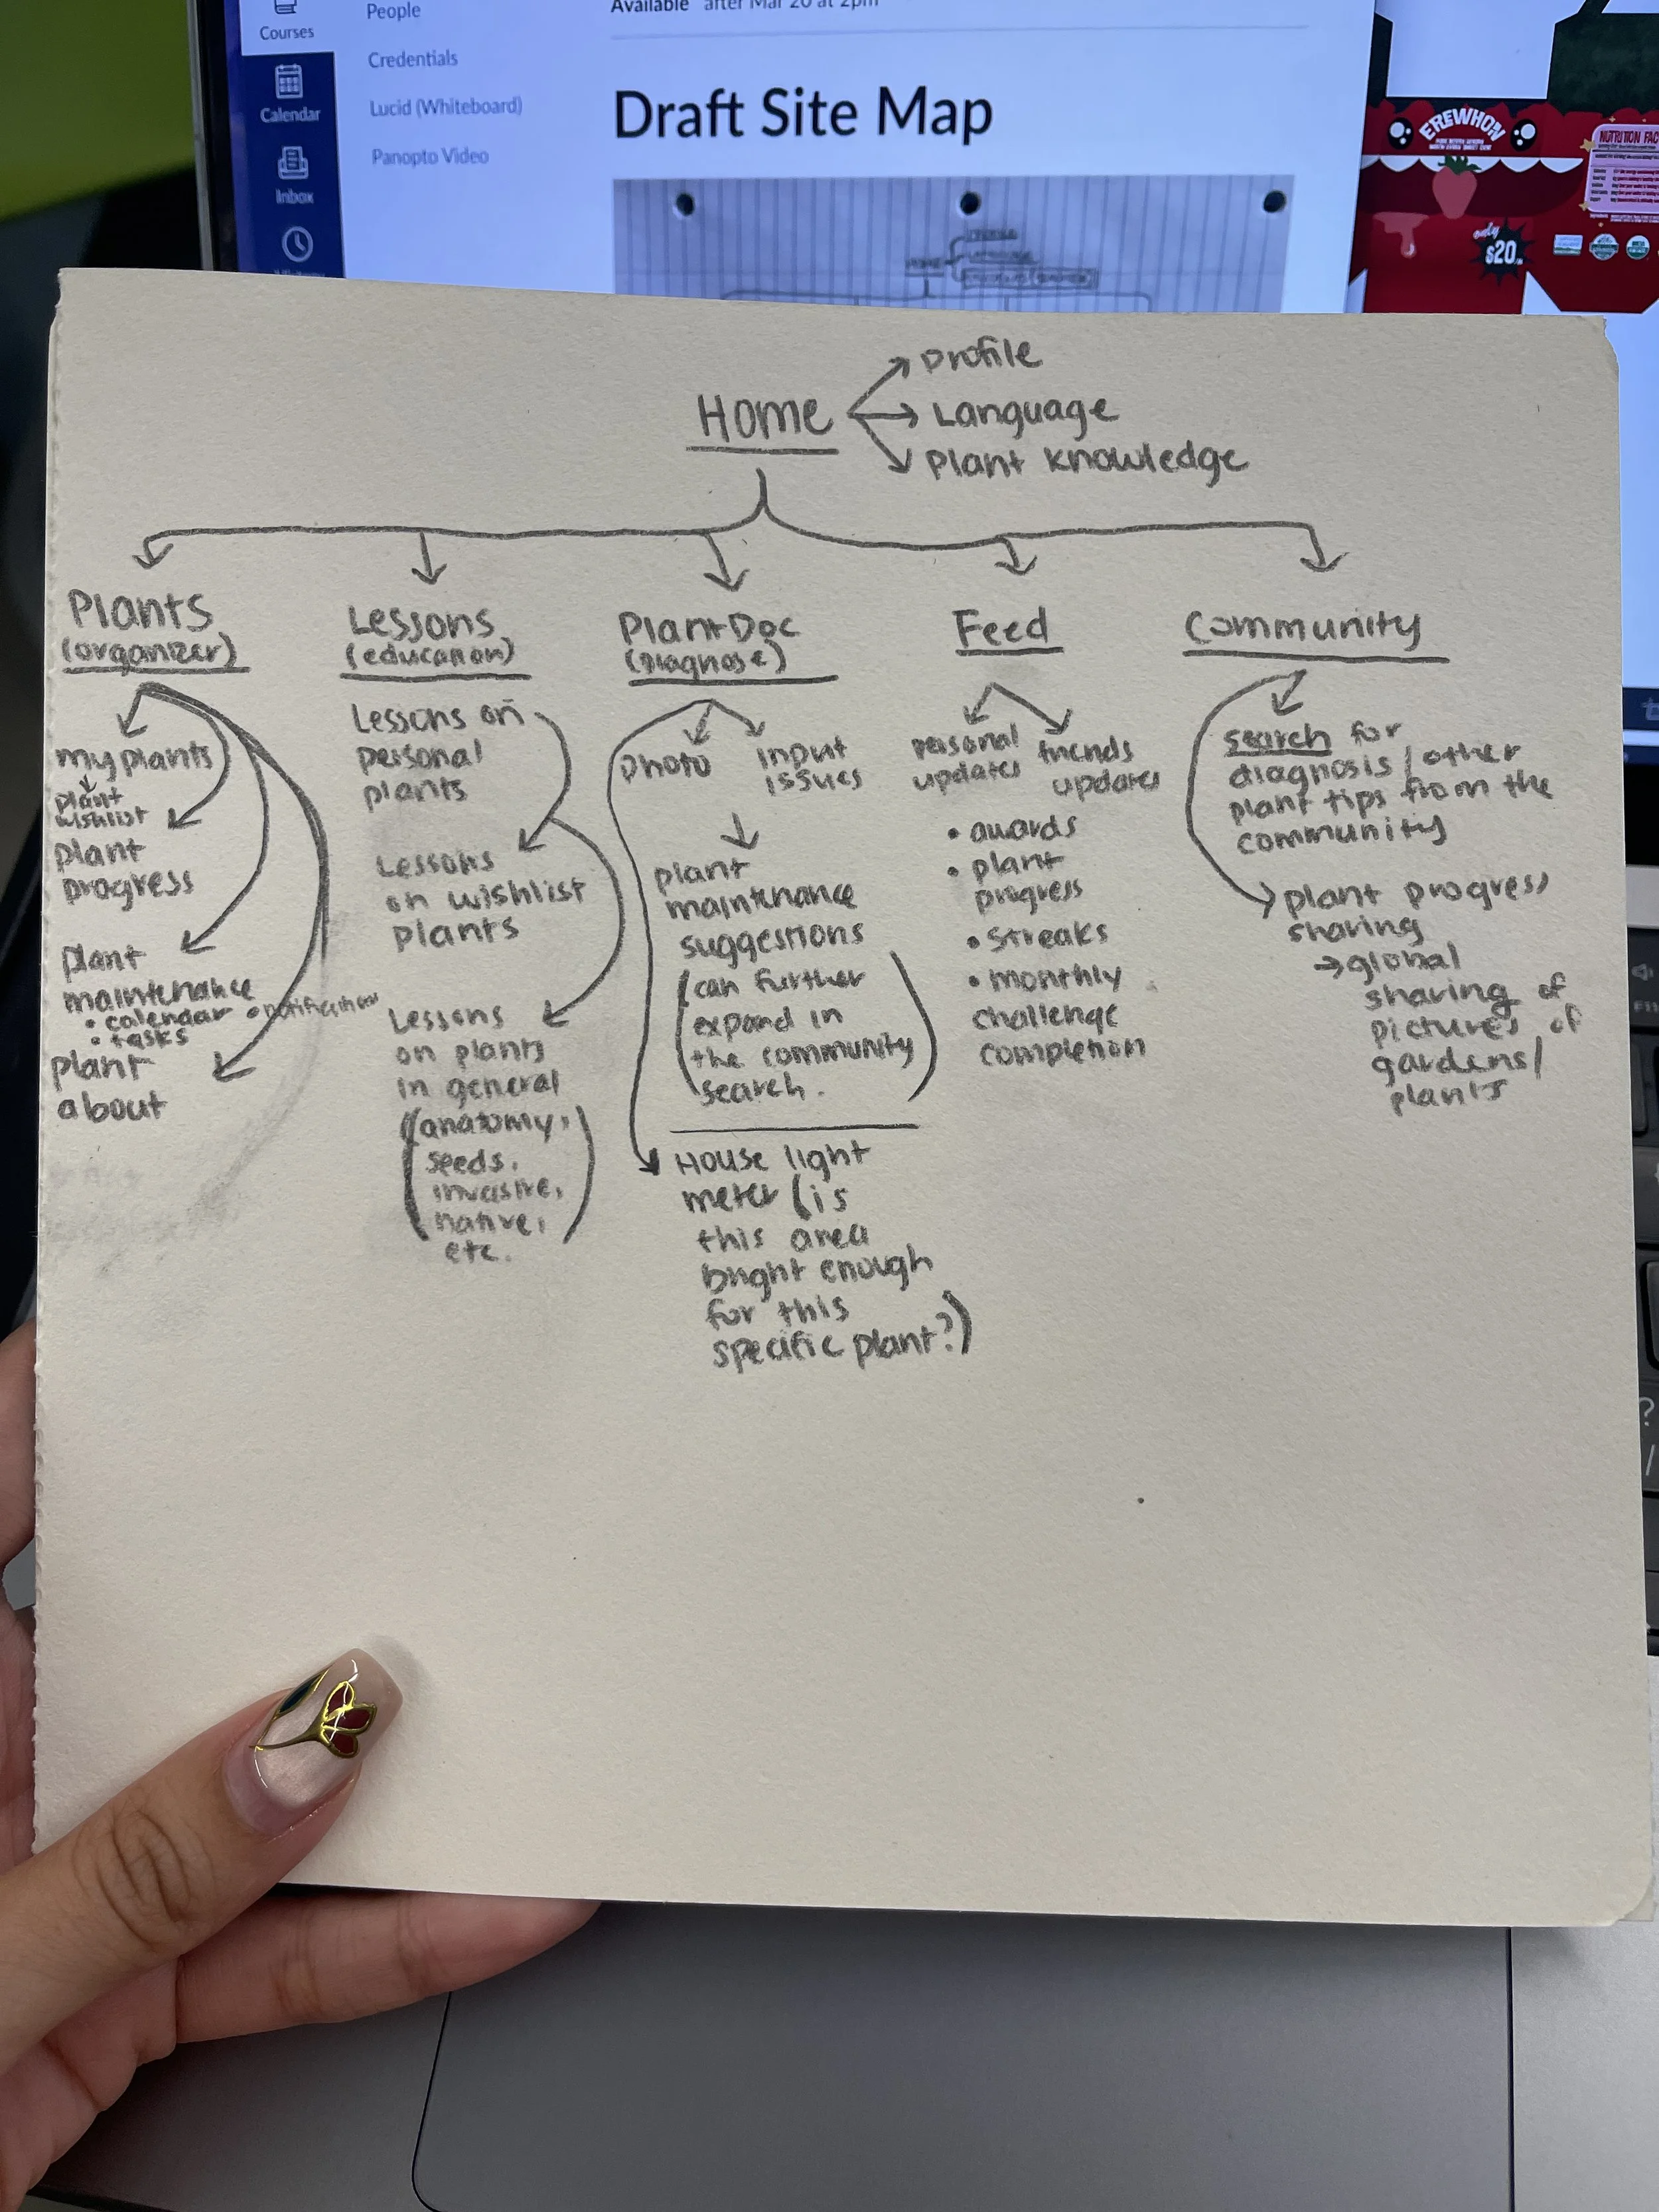 Courses
People
Available after Mar 20 at 2pm
Credentials
Calendar
Lucid (Whiteboard)
Panopto Video
Inbox
Draft Site Map
EREWHON
NUTRITION FAC
only
$20
Home
Profile
Language
Plant Knowledge
Plants
(organizer)
my plants
plant
wishlist
plant
progress
plant
maintenance
• calendar • notifications
• tasks
plant
about
Lessons
(education)
Lessons on
personal
plants
Lessons
on wishlist
plants
Lessons
on plants
in general
(anatomy,
seeds,
invasive,
native,
etc.)
PlantDoc
(Diagnose)
photo
input
issues
plant
maintenance
suggestions
(can further
expand in
the community
search.)
House light
meter (is
this area
bright enough
for this
specific plant?)
Feed
personal
updates
friends
updates
• awards
• plant
progress
• streaks
• monthly
challenge
completion
Community
search for
diagnosis/other
plant tips from the
community
plant progress
sharing
→ global
sharing of
pictures of
gardens/
plants
F11
?
/